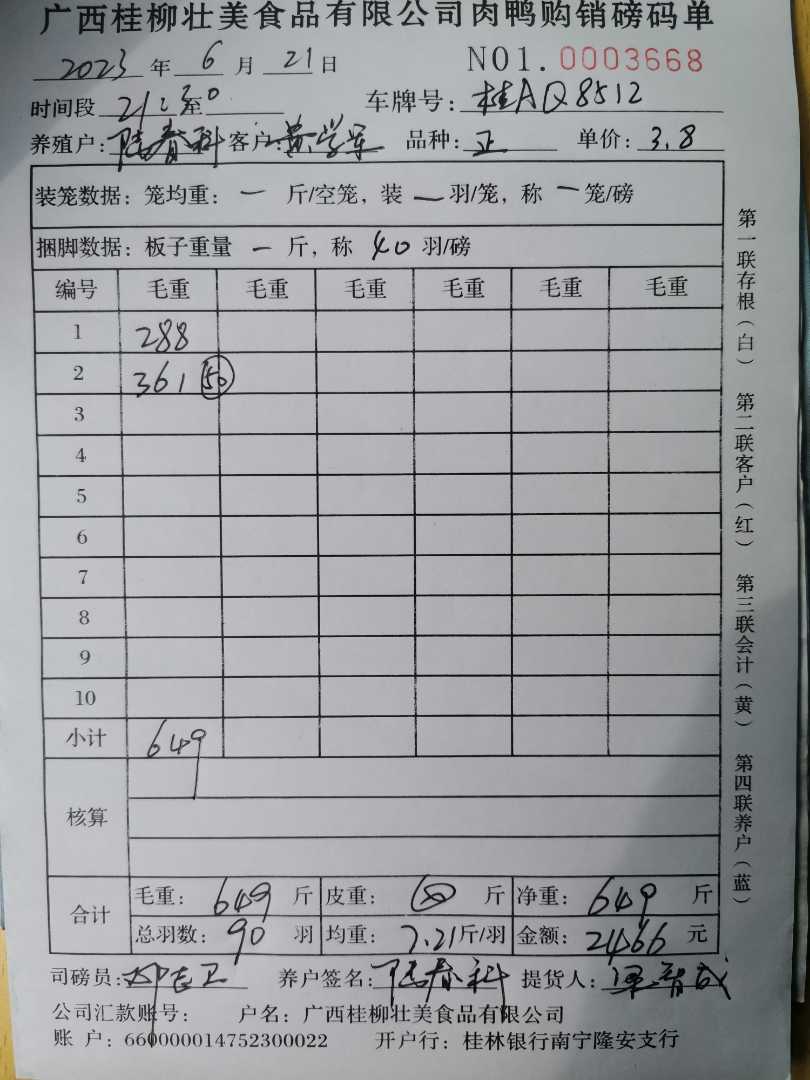 广西桂柳壮美食品有限公司肉鸭购销磅码单
2023 年 6 月 21 日 NO1. 0003668
时间段 21:30 至 车牌号: 桂AQ8512
养殖户: 陆春科 客户: 黄学军 品种: 正 单价: 3.8
装笼数据: 笼均重: 一 斤/空笼, 装 一 羽/笼, 称 一 笼/磅
捆脚数据: 板子重量 一 斤, 称 40 羽/磅
编号 毛重 毛重 毛重 毛重 毛重 毛重
1 288
2 361 50
3
4
5
6
7
8
9
10
小计 649
核算
合计 毛重: 649 斤 皮重: 斤 净重: 649 斤
总羽数: 90 羽 均重: 7.21 斤/羽 金额: 2466 元
司磅员: 养户签名: 陆春科 提货人:
公司汇款账号: 户名: 广西桂柳壮美食品有限公司
账 户: 660000014752300022 开户行: 桂林银行南宁隆安支行
第一联存根(白) 第二联客户(红) 第三联会计(黄) 第四联养户(蓝)